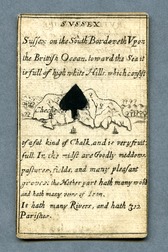 SUSSEX
Sussex on the South Bordereth Upon
the Brittish Ocean, toward the Sea it
is full of high white Hills, which consist
of a sot kind of Chalk, and is very fruit,
full. In the midst are Goodly meddows
pastures, fields, and many pleasant
groves: the Hither part hath many wood
and hath many veins of Iron.
It hath many Rivers, and hath 312
Parishes.